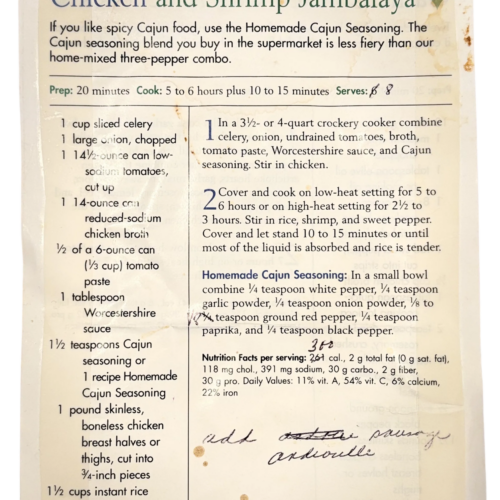 Chicken and Shrimp Jambalaya
If you like spicy Cajun food, use the Homemade Cajun Seasoning. The
Cajun seasoning blend you buy in the supermarket is less fiery than our
home-mixed three-pepper combo.
Prep: 20 minutes Cook: 5 to 6 hours plus 10 to 15 minutes Serves: 6 8
1 cup sliced celery
1 large onion, chopped
1 14½-ounce can low-
sodium tomatoes,
cut up
1 14-ounce can
reduced-sodium
chicken broth
½ of a 6-ounce can
(⅓ cup) tomato
paste
1 tablespoon
Worcestershire
sauce
1½ teaspoons Cajun
seasoning or
1 recipe Homemade
Cajun Seasoning
1 pound skinless,
boneless chicken
breast halves or
thighs, cut into
¾-inch pieces
1½ cups instant rice
1 In a 3½- or 4-quart crockery cooker combine
celery, onion, undrained tomatoes, broth,
tomato paste, Worcestershire sauce, and Cajun
seasoning. Stir in chicken.
2 Cover and cook on low-heat setting for 5 to
6 hours or on high-heat setting for 2½ to
3 hours. Stir in rice, shrimp, and sweet pepper.
Cover and let stand 10 to 15 minutes or until
most of the liquid is absorbed and rice is tender.
Homemade Cajun Seasoning: In a small bowl
combine ¼ teaspoon white pepper, ¼ teaspoon
garlic powder, ¼ teaspoon onion powder, ⅛ to
⅛ ¼ teaspoon ground red pepper, ¼ teaspoon
paprika, and ¼ teaspoon black pepper.
300
Nutrition Facts per serving: 261 cal., 2 g total fat (0 g sat. fat),
118 mg chol., 391 mg sodium, 30 g carbo., 2 g fiber,
30 g pro. Daily Values: 11% vit. A, 54% vit. C, 6% calcium,
22% iron
add sausage
andouille